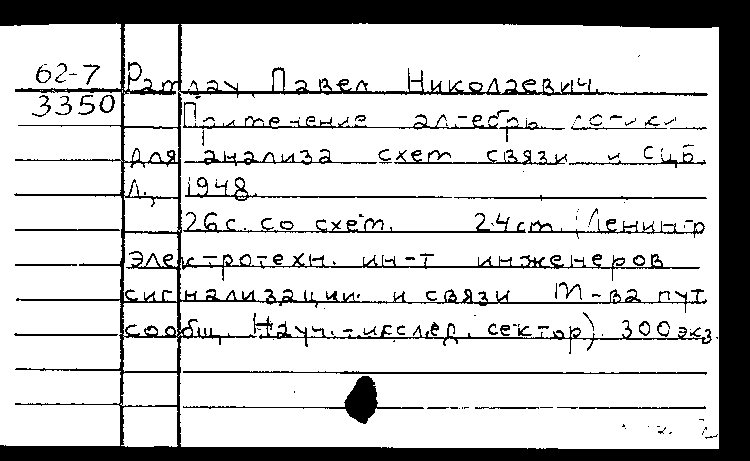 62-7
3350
Рамлау, Павел Николаевич.
Применение алгебры логики
для анализа схем связи и СЦБ.
Л., 1948.
26 с. со схем. 24 см. (Ленингр
электротехн. ин-т инженеров
сигнализации и связи М-ва пут.
сообщ. Науч.-исслед. сектор). 300 экз.